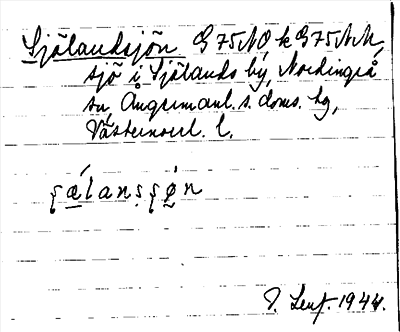 Själandsjön G 75 NO, k G 75 N.M,
sjö i Själands by, Nordingrå
sn Ångermanl. s. doms. hg,
Västernorrl. l.
ʂælanʂʂøn
1944.